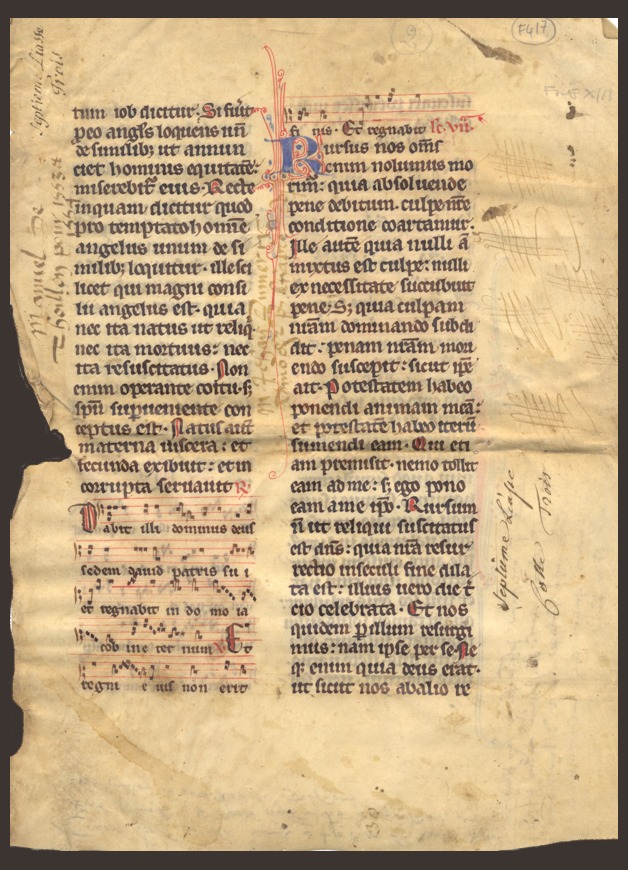 tum iob dicitur. Si fu͛it
ꝓ eo angl̄s loquens un̄
de similibꝫ ut annun
ciet hominis equitatē.
miserebit᷑ eius. Recte
inquam dicitur quod
pro temptato homīe
angelus unum de si
milibꝫ loquitur. ille sci
licet qui magni consi
lii angelus est. quia
nec ita natus ut reliq̄.
nec ita mortuus: nec
ita resuscitatus. Non
enim operante coitu: sꝫ
spū superueniente con
ceptus est. Natus aut̄
materna uiscera: et
fecunda exibuit: et in
corrupta seruauit R.
Dabit illi dominus deus
sedem dauid patris su i
et regnabit in do mo ia
cob in e ter num V Et
regni e ius non erit
fi nis. Et regnabit lc. vii.
Rursus nos om̄s
cum nolumus mo
rim̄: quia absoluende
pene debitum. culpe n̄re
conditione coartamur.
Ille autē quia nulli ā
mixtus est culpe: nulli
ex necessitate succubuit
pene. Sꝫ quia culpam
nr̄am dominando subdi
dit. penam nr̄am mori
endo suscepit: sicut ip̄e
ait. Potestatem habeo
ponendi animam meā:
et potestatē habeo iterū
sumendi eam. Qui eti
am premisit. nemo tollit
eam ad me: sꝫ ego pono
eam a me ip̄o. Rursum
n̄ ut reliqui suscitatus
est dn̄s: quia nr̄a resur
rectio in seculi fine dila
ta est: illius uero die t̄
cio celebrata. Et nos
quidem ꝑ illum resurgi
mus: nam ipse per se. Ne
qꝫ enim quia deus erat.
ut sicut nos ab alio re
Septieme Liasse
Trois
Manuel De
Septieme Liasse
Cotte Trois
F417